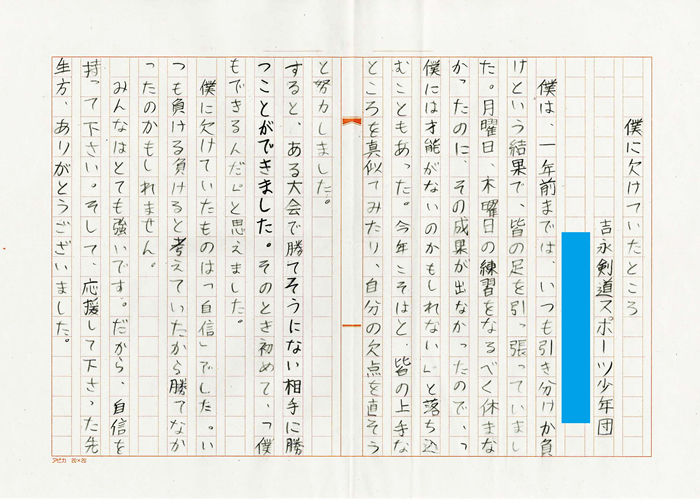 僕に欠けていたところ
吉永剣道スポーツ少年団
僕は、一年前までは、いつも引き分けか負
けという結果で、皆の足を引っ張っていまし
た。月曜日、木曜日の練習をなるべく休まな
かったのに、その成果が出なかったので、「
僕には才能がないのかもしれない」と落ち込
むこともあった。今年こそはと、皆の上手な
ところを真似てみたり、自分の欠点を直そう
と努力しました。
すると、ある大会で勝てそうにない相手に勝
つことができました。そのとき初めて、「僕
もできるんだ」と思えました。
僕に欠けていたものは「自信」でした。い
つも負ける負けると考えていたから勝てなか
ったのかもしれません。
みんなはとても強いです。だから、自信を
持って下さい。そして、応援して下さった先
生方、ありがとうございました。
アピカ 20×20